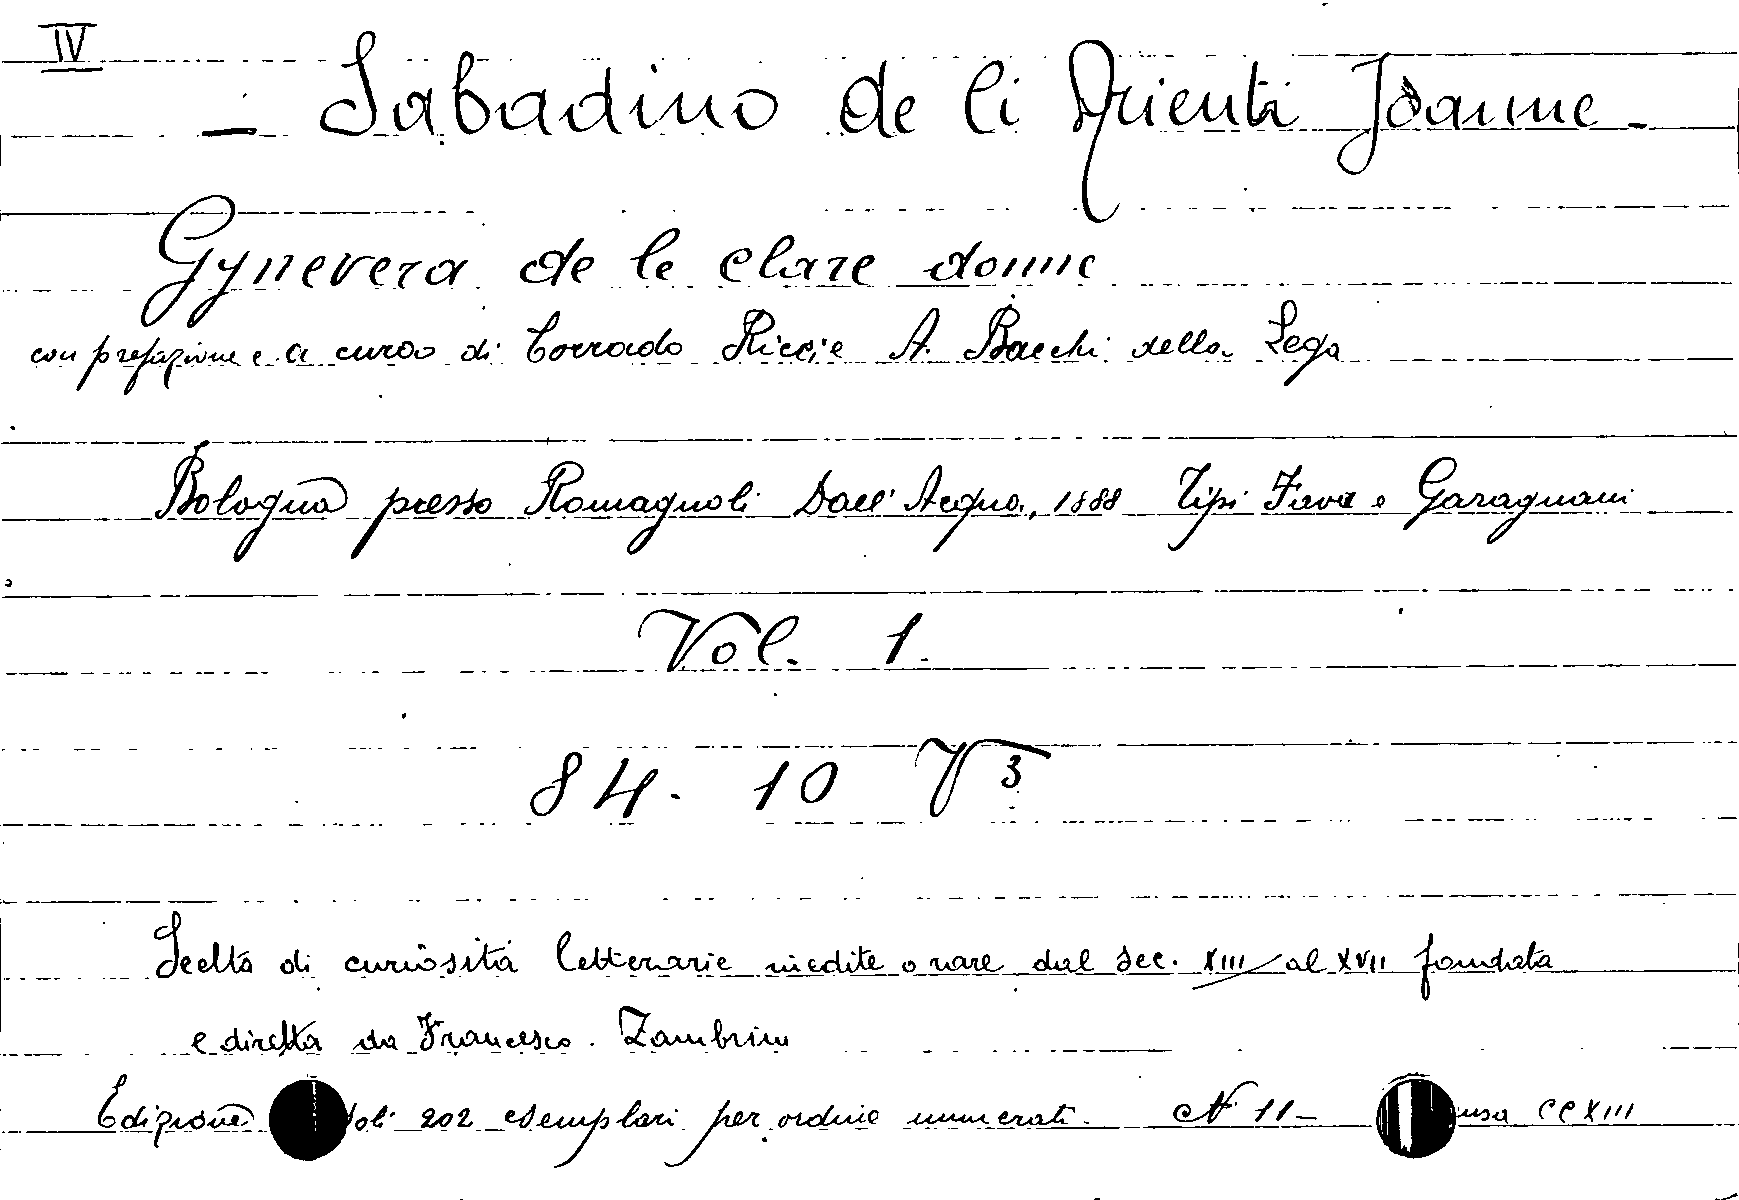 IV
- Sabadino de li Arienti Joanne -
Gynevera de le clare donne
con prefazione e a curao di Corrado Ricci e A. Bacchi della Lega
Bologna presso Romagnoli Dall'Acqua, 1888 Tipi Fava e Garagnani
Vol. 1.
84. 10 V 3
Scelta di curiosità letterarie inedite o rare dal sec. XIII al XVII fondata
e diretta da Francesco Zambrini
Edizione soli 202 esemplari per ordine numerati. N 11 - CCXIII